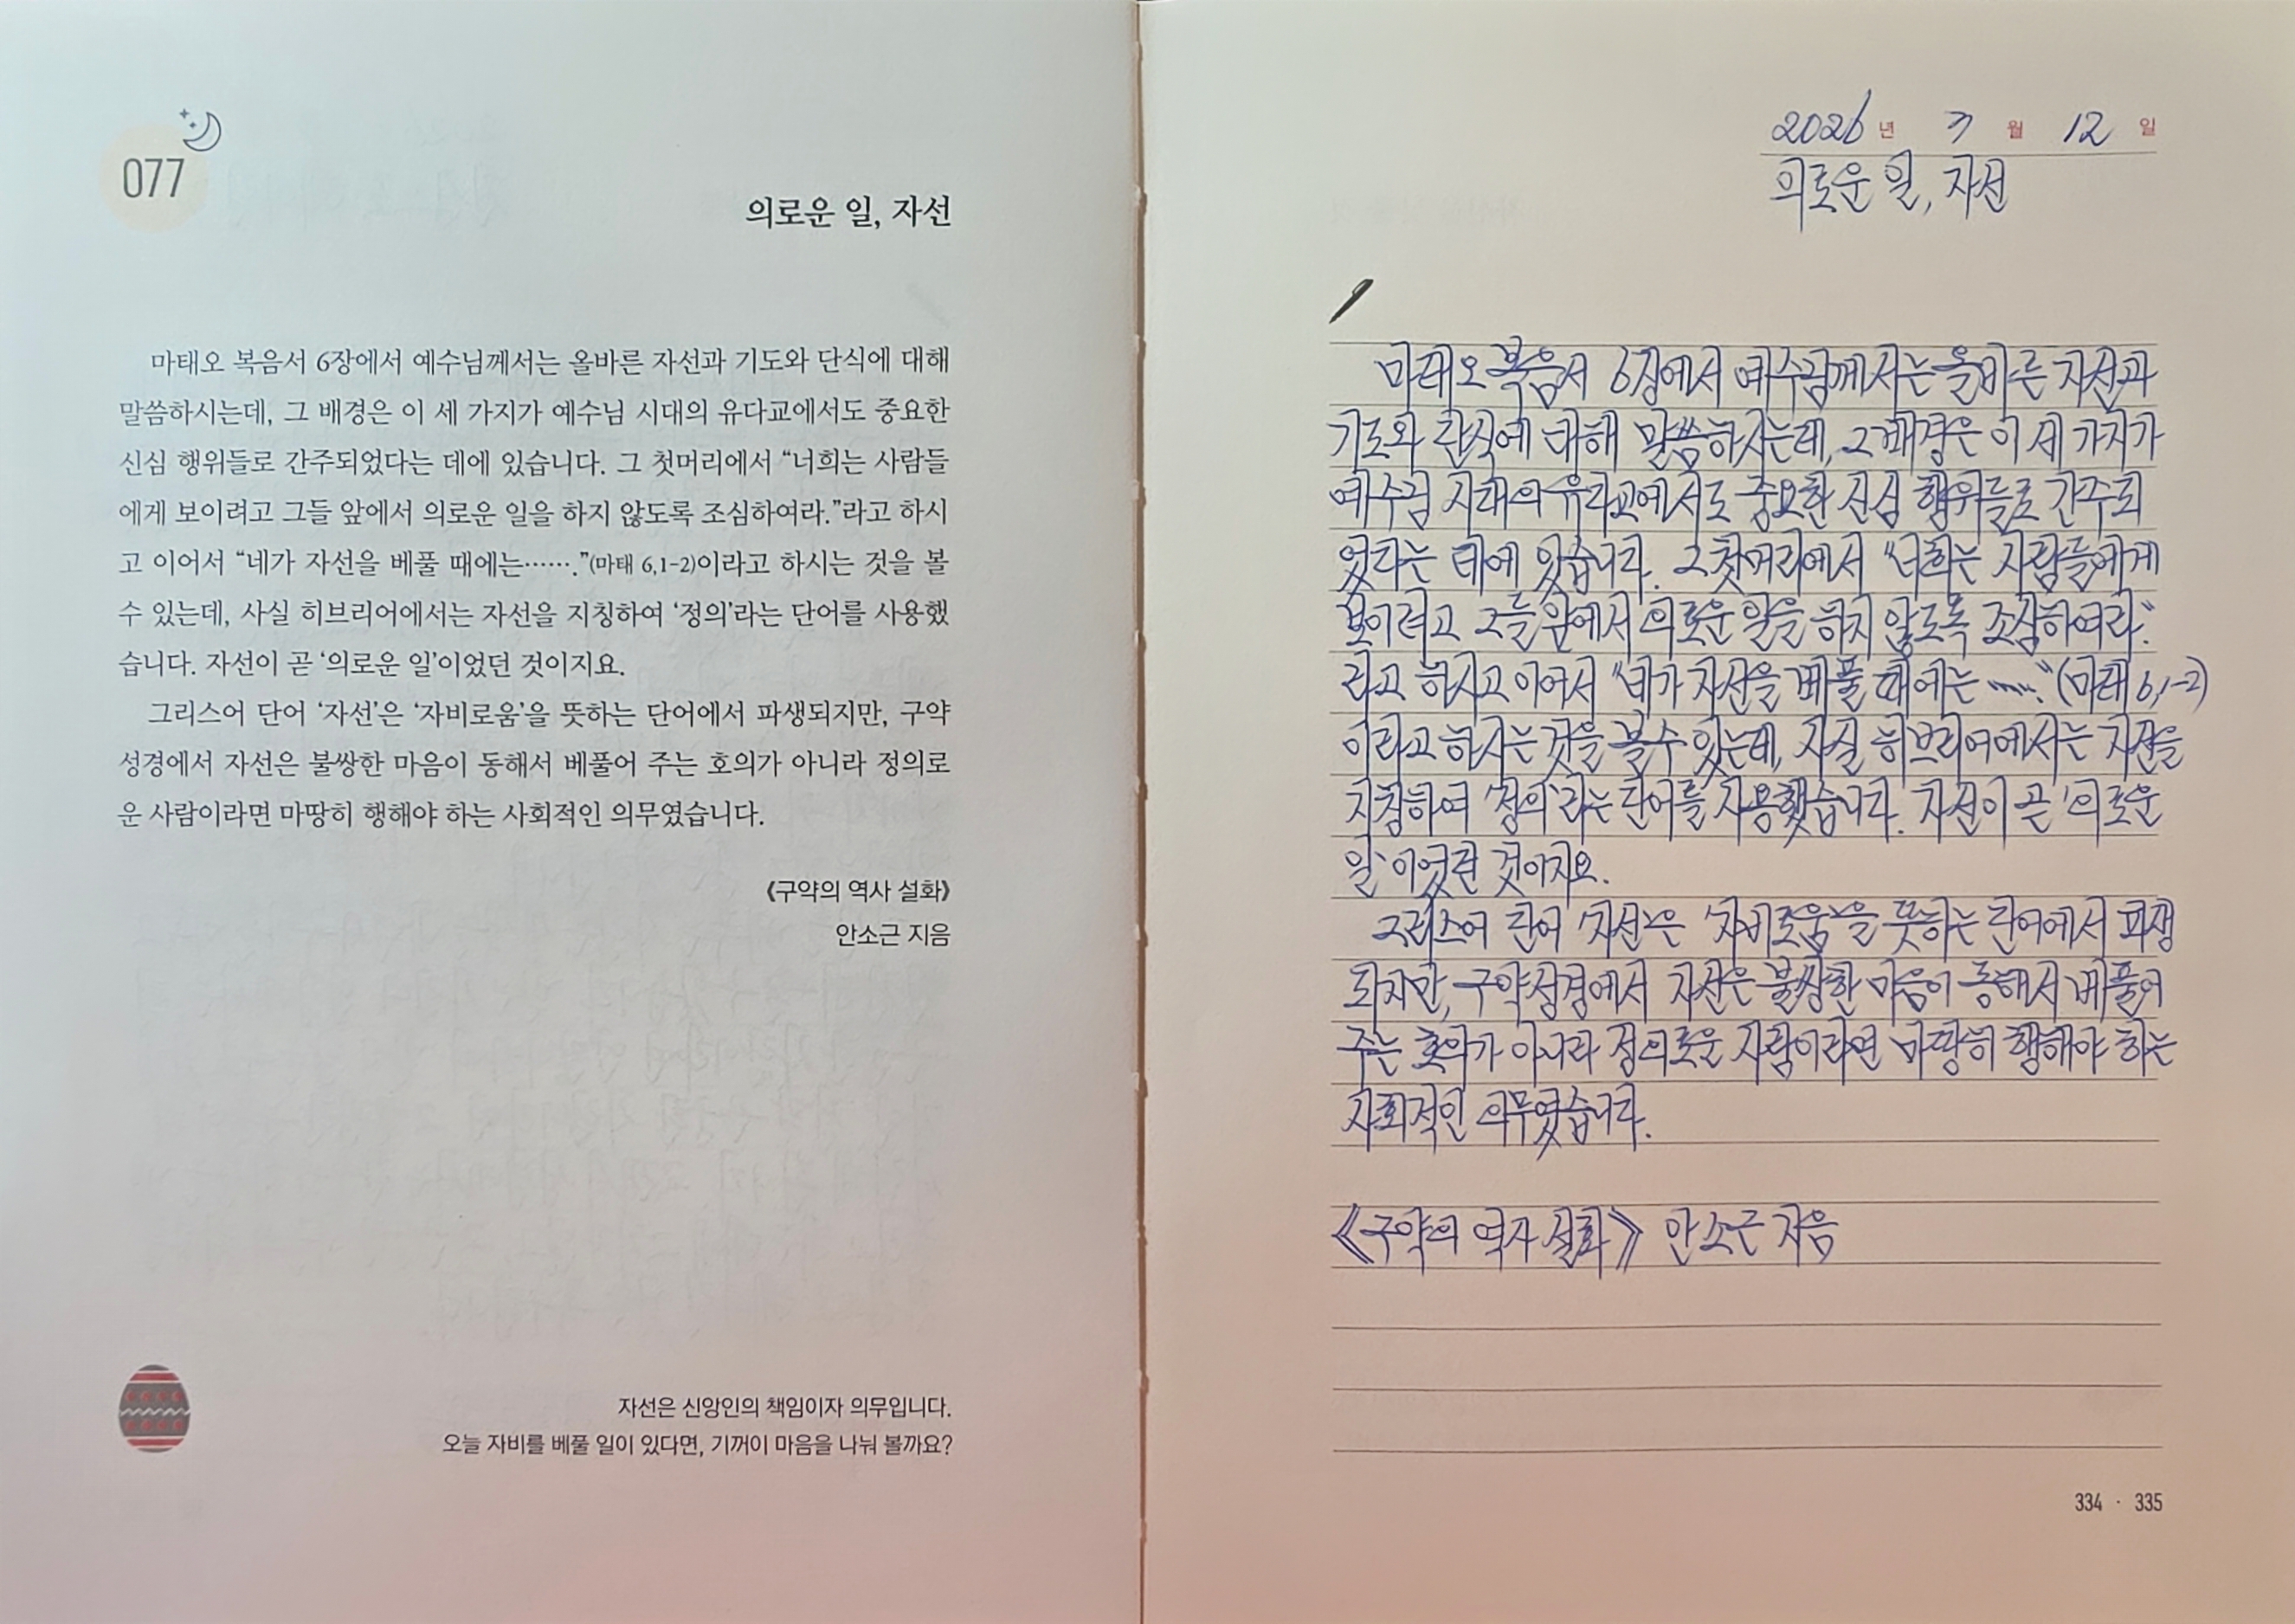 077
의로운 일, 자선
마태오 복음서 6장에서 예수님께서는 올바른 자선과 기도와 단식에 대해
말씀하시는데, 그 배경은 이 세 가지가 예수님 시대의 유다교에서도 중요한
신심 행위들로 간주되었다는 데에 있습니다. 그 첫머리에서 “너희는 사람들
에게 보이려고 그들 앞에서 의로운 일을 하지 않도록 조심하여라.”라고 하시
고 이어서 “네가 자선을 베풀 때에는…….”(마태 6,1-2)이라고 하시는 것을 볼
수 있는데, 사실 히브리어에서는 자선을 지칭하여 ‘정의’라는 단어를 사용했
습니다. 자선이 곧 ‘의로운 일’이었던 것이지요.
그리스어 단어 ‘자선’은 ‘자비로움’을 뜻하는 단어에서 파생되지만, 구약
성경에서 자선은 불쌍한 마음이 동해서 베풀어 주는 호의가 아니라 정의로
운 사람이라면 마땅히 행해야 하는 사회적인 의무였습니다.
《구약의 역사 설화》
안소근 지음
자선은 신앙인의 책임이자 의무입니다.
오늘 자비를 베풀 일이 있다면, 기꺼이 마음을 나눠 볼까요?
2026년 7월 12일
의로운 일, 자선
마태오 복음서 6장에서 예수님께서는 올바른 자선과
기도와 단식에 대해 말씀하시는데, 그 배경은 이 세 가지가
예수님 시대의 유다교에서도 중요한 신심 행위들로 간주되
었다는 데에 있습니다. 그 첫머리에서 “너희는 사람들에게
보이려고 그들 앞에서 의로운 일을 하지 않도록 조심하여라.”
라고 하시고 이어서 “네가 자선을 베풀 때에는…….”(마태 6,1-2)
이라고 하시는 것을 볼 수 있는데, 사실 히브리어에서는 자선을
지칭하여 ‘정의’라는 단어를 사용했습니다. 자선이 곧 ‘의로운
일’이었던 것이지요.
그리스어 단어 ‘자선’은 ‘자비로움’을 뜻하는 단어에서 파생
되지만, 구약성경에서 자선은 불쌍한 마음이 동해서 베풀어
주는 호의가 아니라 정의로운 사람이라면 마땅히 행해야 하는
사회적인 의무였습니다.
《구약의 역사 설화》 안소근 지음
334 · 335